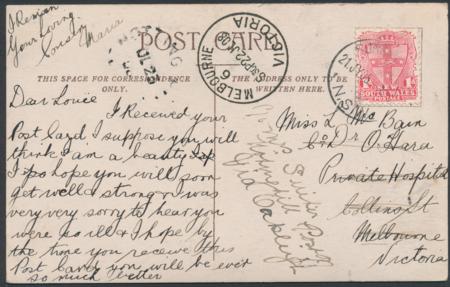 I Remain
Your Loving
Cousin Maria
POST CARD
THIS SPACE FOR CORRESPONDENCE
ONLY.
THE ADDRESS ONLY TO BE
WRITTEN HERE.
MELBOURNE
VICTORIA
SOUTH WALES
Dear Louie
I Received your
Post Card I suppose you will
think I am a beauty
I do hope you will soon
get well & strong I was
very very sorry to hear you
were so ill & I hope by
the time you receive this
Post Card you will be ever
so much better
Miss L Mc Bain
C/o Dr O'Hara
Private Hospital
Collins St
Melbourne
Victoria
Via Oakleigh